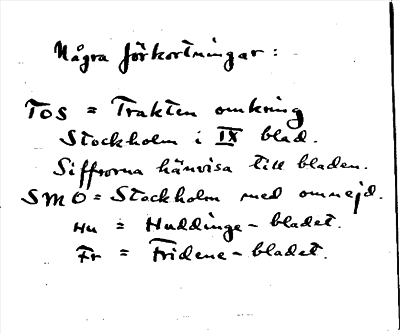 Några förkortningar:
TOS = Trakten omkring
Stockholm i IX blad.
Siffrorna hänvisa till bladen.
SMO = Stockholm med omnejd.
Hu = Huddinge-bladet.
Fr = Fridene-bladet.